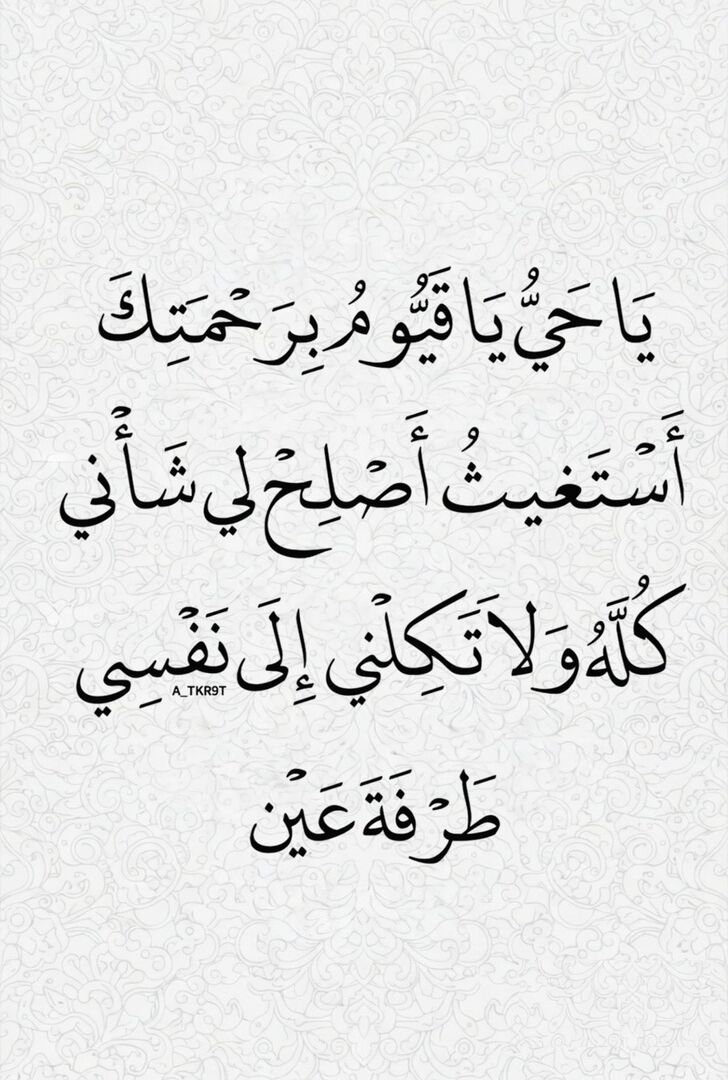 يَا حَيُّ يَا قَيُّومُ بِرَحْمَتِكَ
أَسْتَغيثُ أَصْلِحْ لي شَأْني
كُلَّهُ وَلاَ تَكِلْني إِلَى نَفْسِي
A_TKR9T
طَرْفَةَ عَيْن